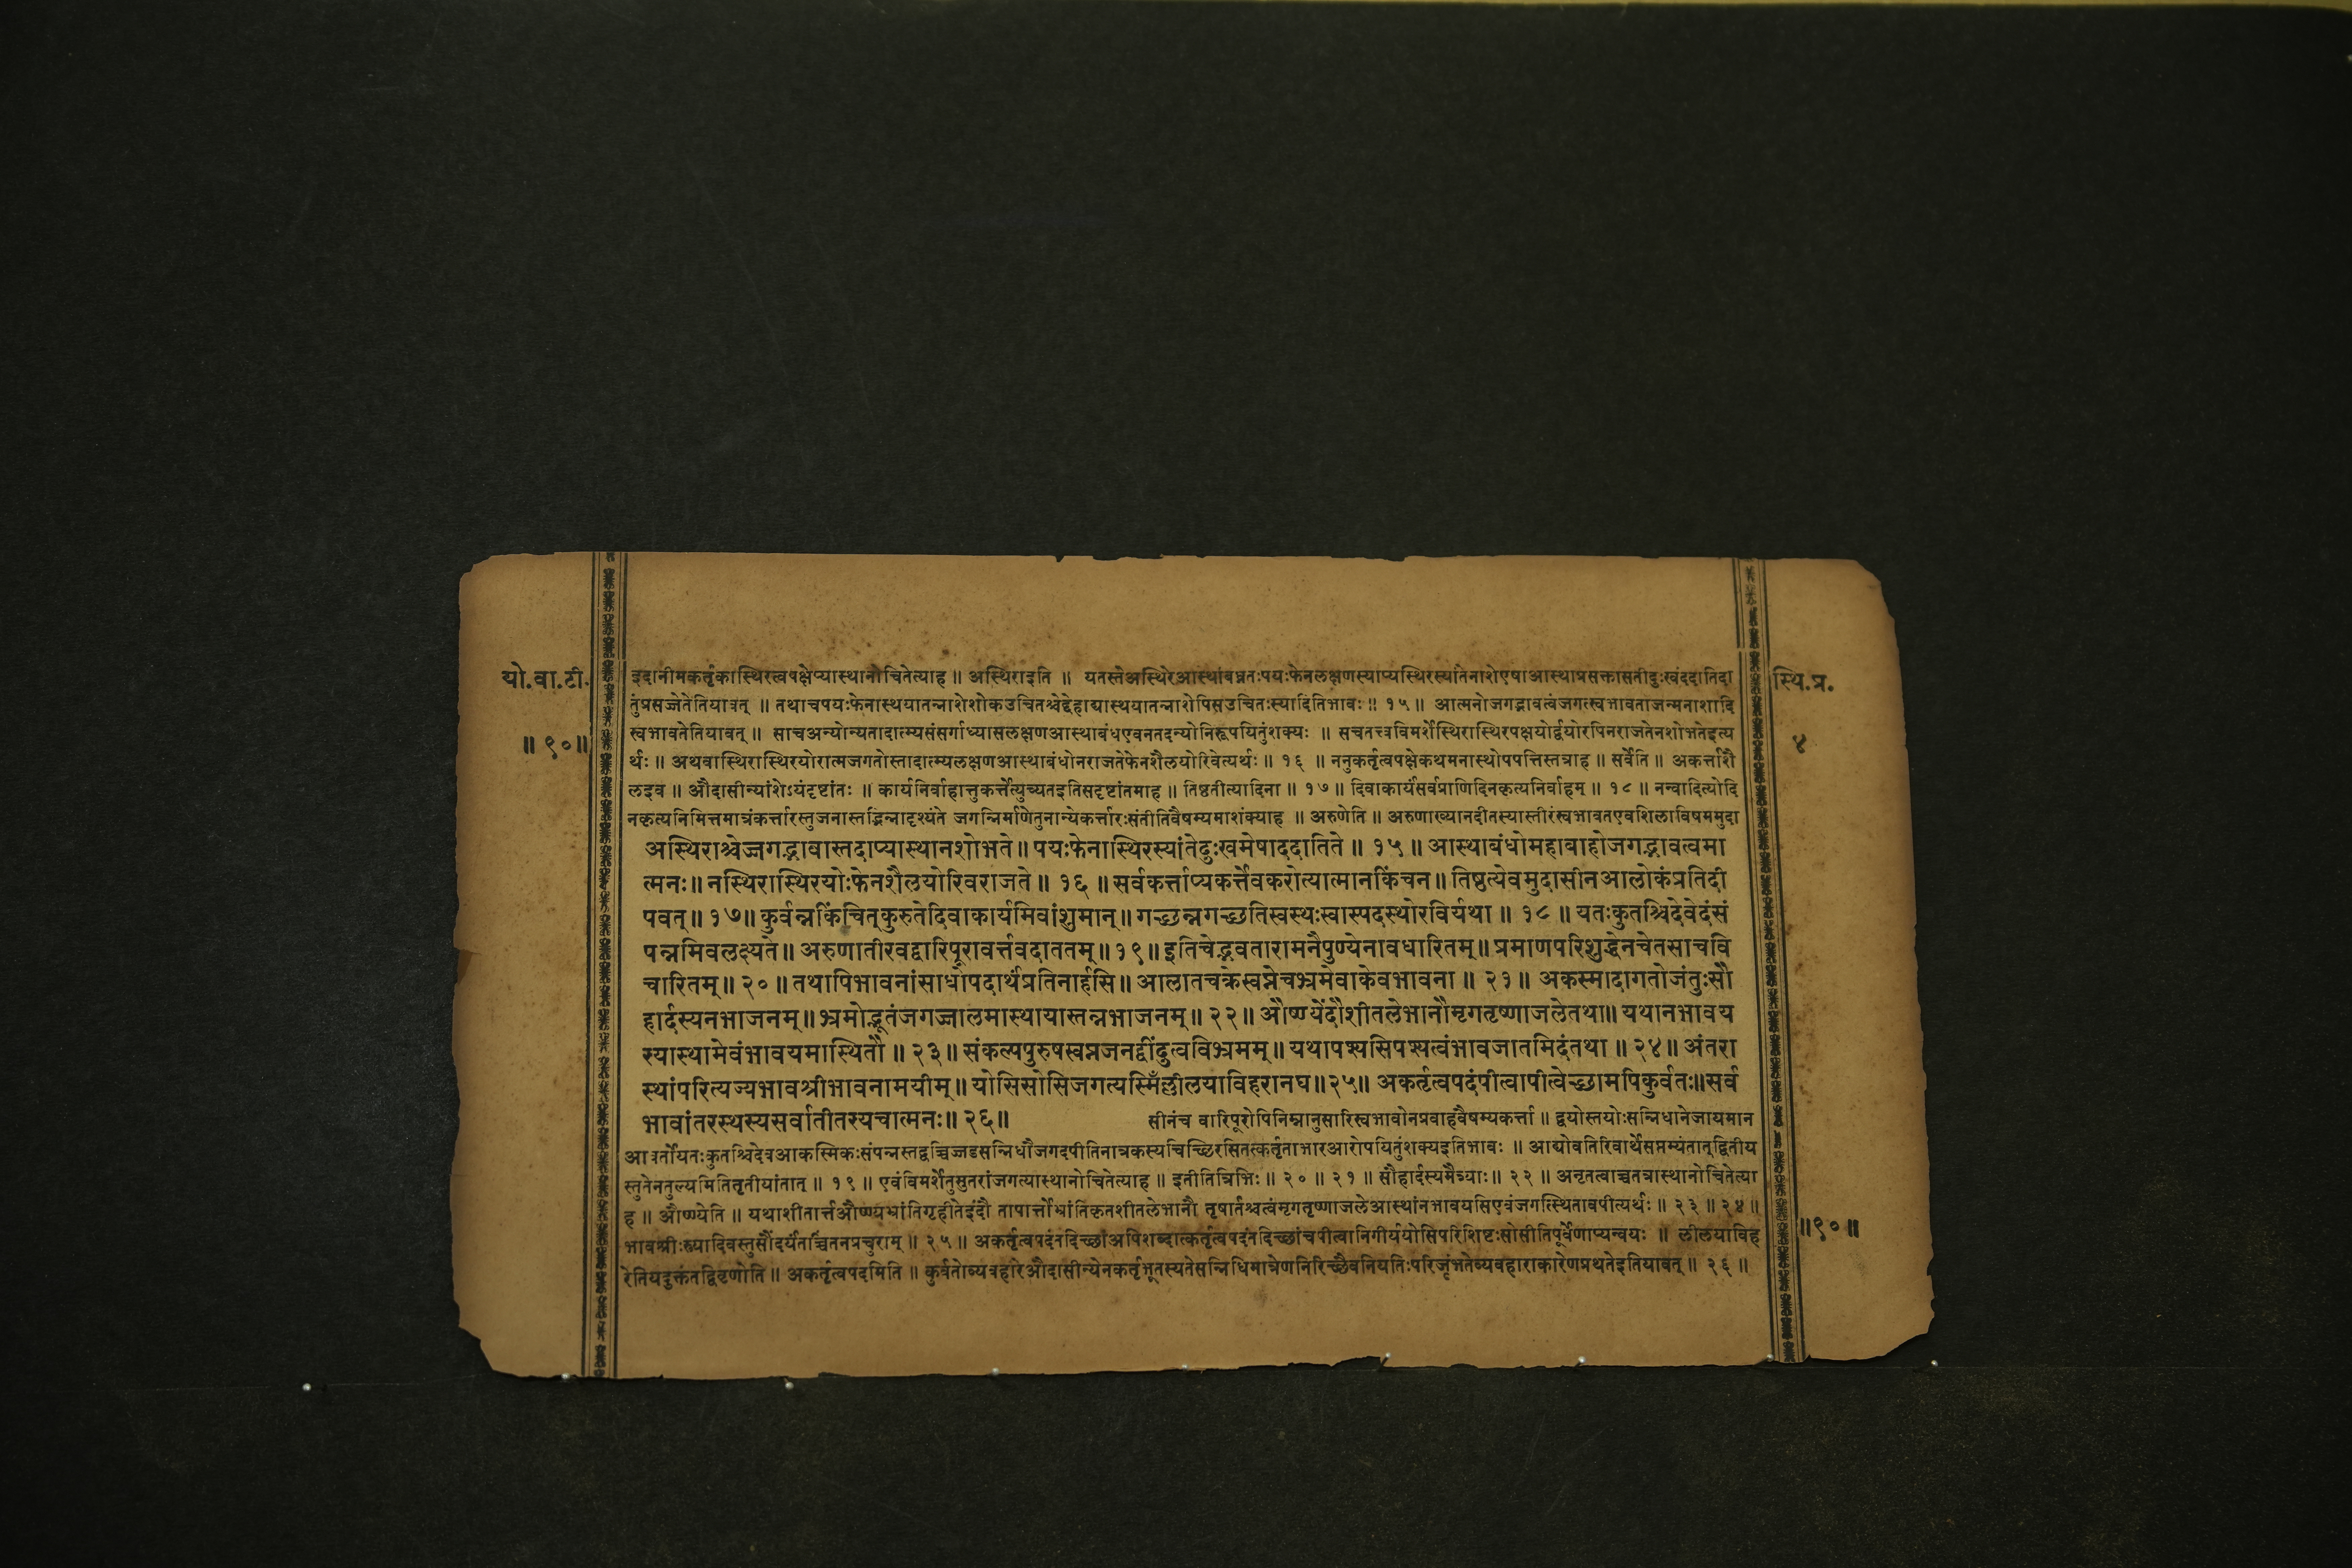 यो.वा.टी.
॥९०॥
स्थि.प्र.
४
इदानीमकर्तृकास्थिरत्वपक्षेप्यास्थानोचितेत्याह ॥ अस्थिराइति ॥ यतस्तेअस्थिरेआस्थांबध्नतःपयःफेनलक्षणस्याप्यस्थिरस्यांतेनाशेएषाआस्थाप्रसक्तासतीदुःखंददातिदा
तुंप्रसज्जेतेतियावत् ॥ तथाचपयःफेनास्थयातन्नाशेशोकउचितश्चेद्देहाद्यास्थयातन्नाशेपिसउचितःस्यादितिभावः ॥ १५ ॥ आत्मनोजगद्भावत्वंजगत्स्वभावताजन्मनाशादि
स्वभावतेतियावत् ॥ साचअन्योन्यतादात्म्यसंसर्गाध्यासलक्षणआस्थाबंधएवनतदन्योनिरूपयितुंशक्यः ॥ सचतत्त्वविमर्शेस्थिरास्थिरपक्षयोर्द्वयोरपिनराजतेनशोभतेइत्य
र्थः ॥ अथवास्थिरास्थिरयोरात्मजगतोस्तादात्म्यलक्षणआस्थाबंधोनराजतेफेनशैलयोरिवेत्यर्थः ॥ १६ ॥ ननुकर्तृत्वपक्षेकथमनास्थोपपत्तिस्तत्राह ॥ सर्वेति ॥ अकर्त्ताशै
लइव ॥ औदासीन्यांशेऽयंदृष्टांतः ॥ कार्यनिर्वाहात्तुकर्त्तेत्युच्यतइतिसदृष्टांतमाह ॥ तिष्ठतीत्यादिना ॥ १७ ॥ दिवाकार्यंसर्वप्राणिदिनकृत्यनिर्वाहम् ॥ १८ ॥ नन्वादित्योदि
नकृत्यनिमित्तमात्रंकर्त्तारस्तुजनास्तद्भिन्नादृश्यंते जगन्निर्माणेतुनान्येकर्त्तारःसंतीतिवैषम्यमाशंक्याह ॥ अरुणेति ॥ अरुणाख्यानदीतस्यास्तीरंस्वभावतएवशिलाविषममुदा
अस्थिराश्चेज्जगद्भावास्तदाप्यास्थानशोभते॥ पयःफेनास्थिरस्यांतेदुःखमेषाददातिते ॥ १५ ॥ आस्थाबंधोमहाबाहोजगद्भावत्वमा
त्मनः॥ नस्थिरास्थिरयोःफेनशैलयोरिवराजते ॥ १६ ॥ सर्वकर्त्ताप्यकर्त्तेवकरोत्यात्मानकिंचन॥ तिष्ठत्येवमुदासीनआलोकंप्रतिदी
पवत् ॥ १७॥ कुर्वन्नकिंचित्कुरुतेदिवाकार्यमिवांशुमान्॥ गच्छन्नगच्छतिस्वस्थःस्वास्पदस्थोरविर्यथा ॥ १८ ॥ यतःकुतश्चिदेवेदंसं
पन्नमिवलक्ष्यते॥ अरुणातीरवद्वारिपूरावर्त्तवदाततम्॥१९॥ इतिचेद्भवतारामनैपुण्येनावधारितम्॥ प्रमाणपरिशुद्धेनचेतसाचवि
चारितम् ॥ २० ॥ तथापिभावनांसाधोपदार्थंप्रतिनार्हसि॥ आलातचक्रेस्वप्नेचभ्रमेवाकेवभावना ॥ २१ ॥ अकस्मादागतोजंतुःसौ
हार्दस्यनभाजनम्॥ भ्रमोद्भूतंजगज्जालमास्थायास्तन्नभाजनम् ॥ २२ ॥ औष्ण्येंदौशीतलेभानौमृगतृष्णाजलेतथा॥ यथानभावय
स्यास्थामेवंभावयमास्थितौ ॥ २३॥ संकल्पपुरुषस्वप्नजनद्वींदुत्वविभ्रमम्॥ यथापश्यसिपश्यत्वंभावजातमिदंतथा ॥ २४॥ अंतरा
स्थांपरित्यज्यभावश्रीभावनामयीम्॥ योसिसोसिजगत्यस्मिँल्लीलयाविहरानघ॥२५॥ अकर्तृत्वपदंपीत्वापीत्वेच्छामपिकुर्वतः॥सर्व
भावांतरस्थस्यसर्वातीतस्यचात्मनः॥ २६॥ सीनंच वारिपूरोपिनिम्नानुसारिस्वभावोनप्रवाहवैषम्यकर्त्ता ॥ द्वयोस्तयोःसन्निधानेजायमान
आवर्तोयतःकुतश्चिदेवआकस्मिकःसंपन्नस्तद्वच्चिज्जडसन्निधौजगदपीतिनात्रकस्यचिच्छिरसितत्कर्तृताभारआरोपयितुंशक्यइतिभावः ॥ आद्योवतिरिवार्थेसप्तम्यंतात्द्वितीय
स्तुतेनतुल्यमितितृतीयांतात् ॥ १९ ॥ एवंविमर्शेतुसुतरांजगत्यास्थानोचितेत्याह ॥ इतीतित्रिभिः ॥ २० ॥ २१ ॥ सौहार्दस्यमैत्र्याः॥ २२ ॥ अनृतत्वाच्चतत्रास्थानोचितेत्या
ह ॥ औष्ण्येति ॥ यथाशीतार्त्तऔष्ण्यभ्रांतिगृहीतेइंदौ तापार्त्तोभ्रांतिकृतशीतलेभानौ तृषार्तश्चत्वंमृगतृष्णाजलेआस्थांनभावयसिएवंजगत्स्थितावपीत्यर्थः ॥ २३ ॥ २४॥
भावश्रीःस्त्र्यादिवस्तुसौंदर्यंतच्चिंतनप्रचुराम् ॥ २५ ॥ अकर्तृत्वपदंतदिच्छांअपिशब्दात्कर्तृत्वपदंतदिच्छांचपीत्वानिगीर्ययोसिपरिशिष्टःसोसीतिपूर्वेणाप्यन्वयः ॥ लीलयाविह
रेतियदुक्तंतद्विवृणोति ॥ अकर्तृत्वपदमिति ॥ कुर्वतोव्यवहारेऔदासीन्येनकर्तृभूतस्यतेसन्निधिमात्रेणनिरिच्छैवनियतिःपरिजृंभतेव्यवहाराकारेणप्रथतेइतियावत् ॥ २६ ॥
॥९०॥